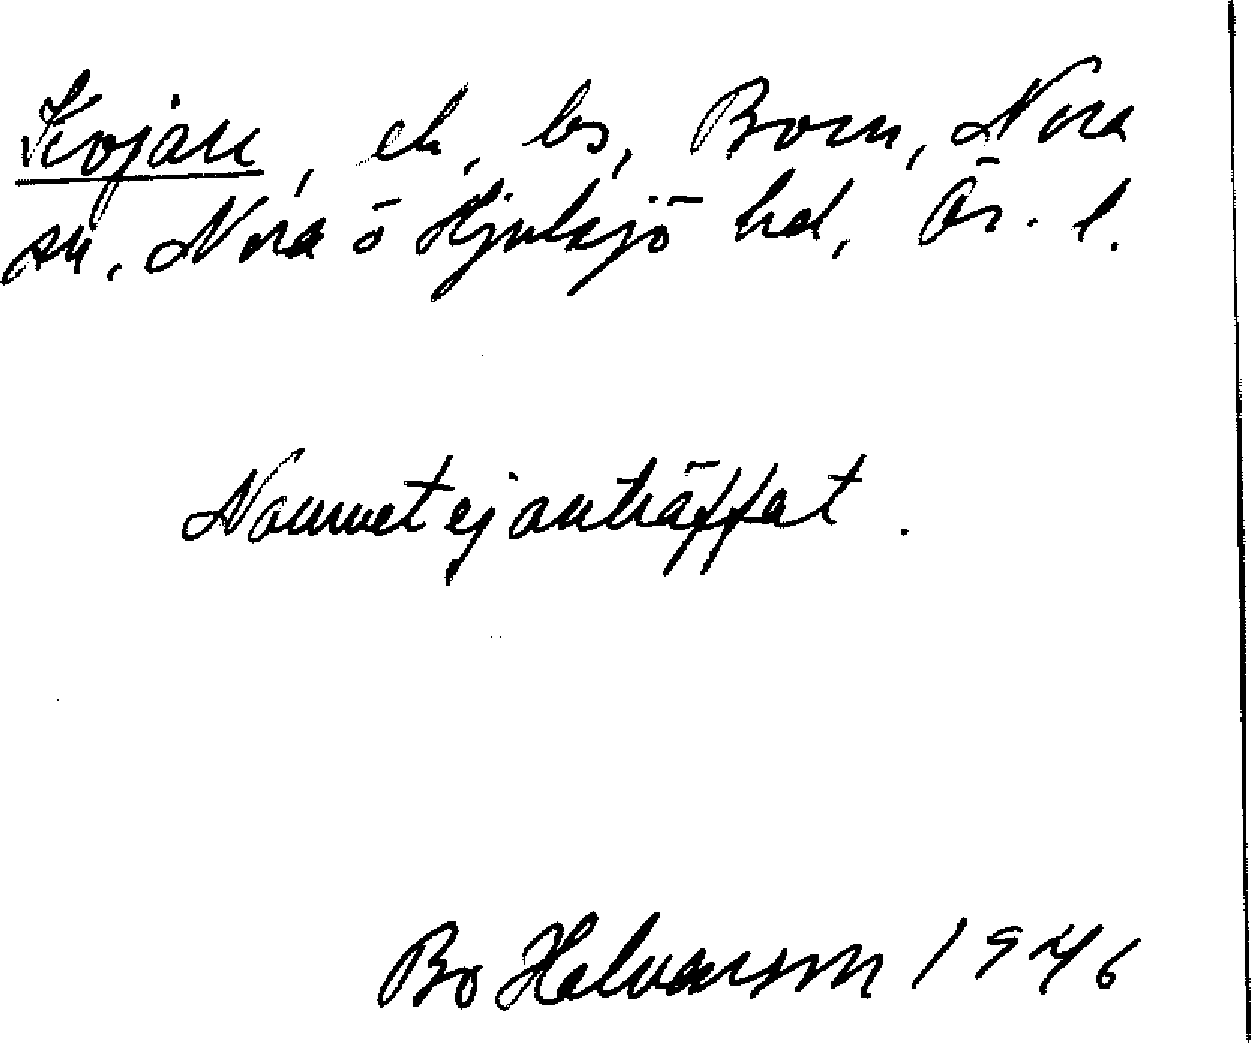 Kojan, ek, bs, Born, Nora
sn, Nora o Hjulsjö hd, Ör. l.
Namnet ej anträffat.
Bo Halvarsson 1946